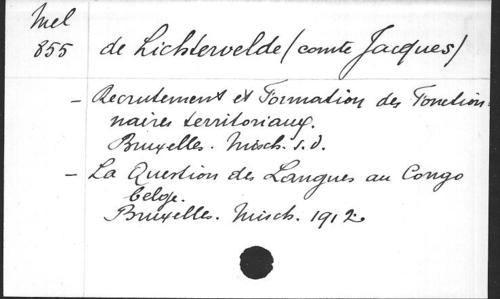 Mel
855
de Lichtervelde (comte Jacques)
- Recrutement et Formation des Fonction-
naires territoriaux.
Bruxelles. Misch. s.d.
- La Question des Langues au Congo
belge.
Bruxelles. Misch. 1912